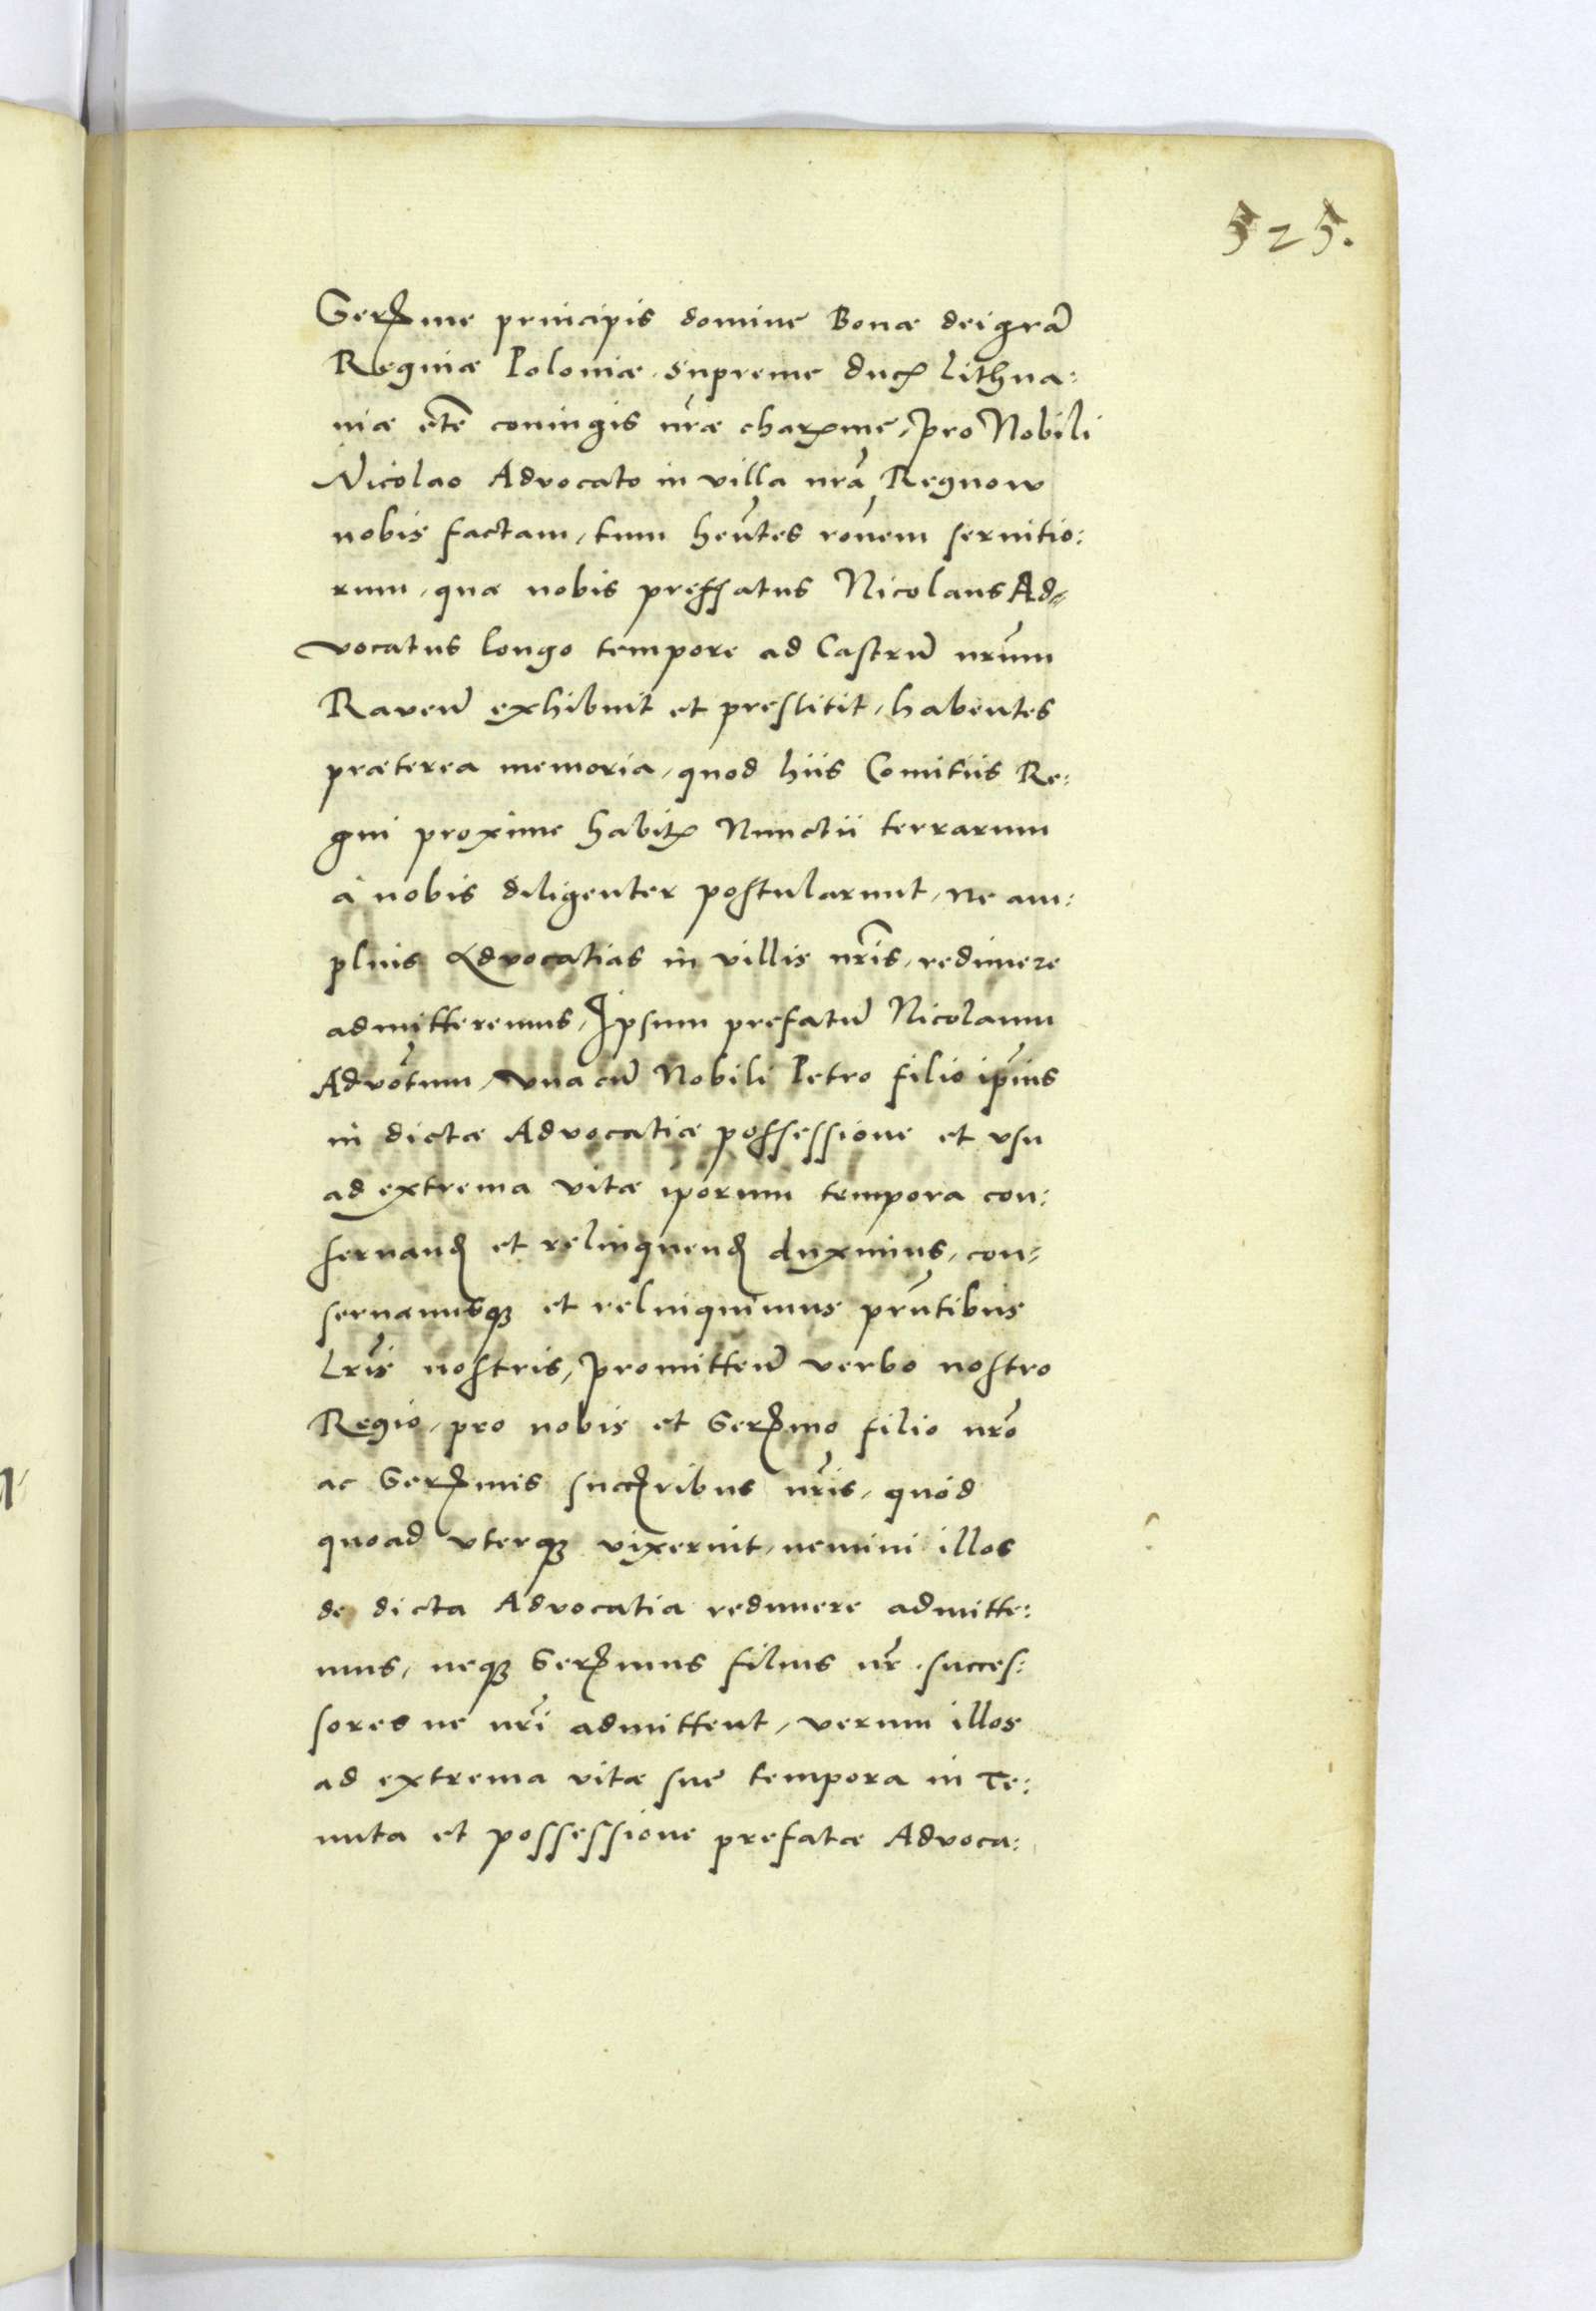 525.
Serꝰme principis domine Bonæ dei gra͂
Reginæ Poloniæ, supreme duc͛ Lithua:
niæ etc͂ coniugis nr͂æ charꝰme, pro Nobili
Nicolao Advocato in villa nr͂a Regnow
nobis factam, tum hen͂tes ron͂em seruitio:
rum, quæ nobis preffatus Nicolaus Ad=
vocatus longo tempore ad Castru͂ nr͂um
Raven͂ exhibuit et prestitit, habentes
præterea memoria, quod hiis Comitiis Re:
gni proxime habit͛ Nunctii terrarum
à nobis diligenter postularunt, ne am:
plius Advocatias in villis nr͂is, redimere
admitteremus, Ipsum prefatu͂ Nicolaum
Advot͂um, vna cu͂ Nobili Petro filio ip͂ius
in dictæ Advocatiæ possessione et vsu
ad extrema vitæ ip͂orum tempora con:
seruand͛ et relinquend͛ duximus, con=
seruamusqꝫ et relinquimus prn͂tibus
Lr͂is nostris, promitten͂ verbo nostro
Regio, pro nobis et Serꝰmo filio nr͂o
ac Serꝰmis succꝰribus nr͂is, quòd
quoad vterqꝫ vixerint, nemini illos
de dicta Advocatia redimere admitte:
mus, neqꝫ Serꝰmus filius nr͂ succes:
sores ne nr͂i admittent, verum illos
ad extrema vitæ sue tempora in Te:
nuta et possessione prefatæ Advoca: